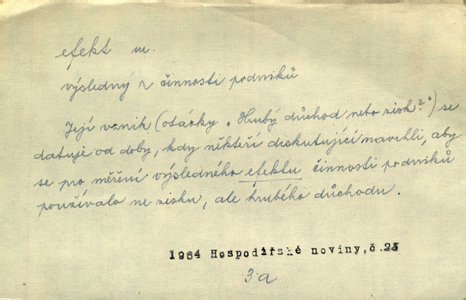 efekt m.
výsledný z činnosti podniků
Její vznik (otázky „Hrubý důchod nebo zisk?“) se
datuje od doby, kdy někteří diskutující navrhli, aby
se pro měření výsledného efektu činnosti podniků
používalo ne zisku, ale hrubého důchodu.
1964 Hospodářské noviny, č.
3a